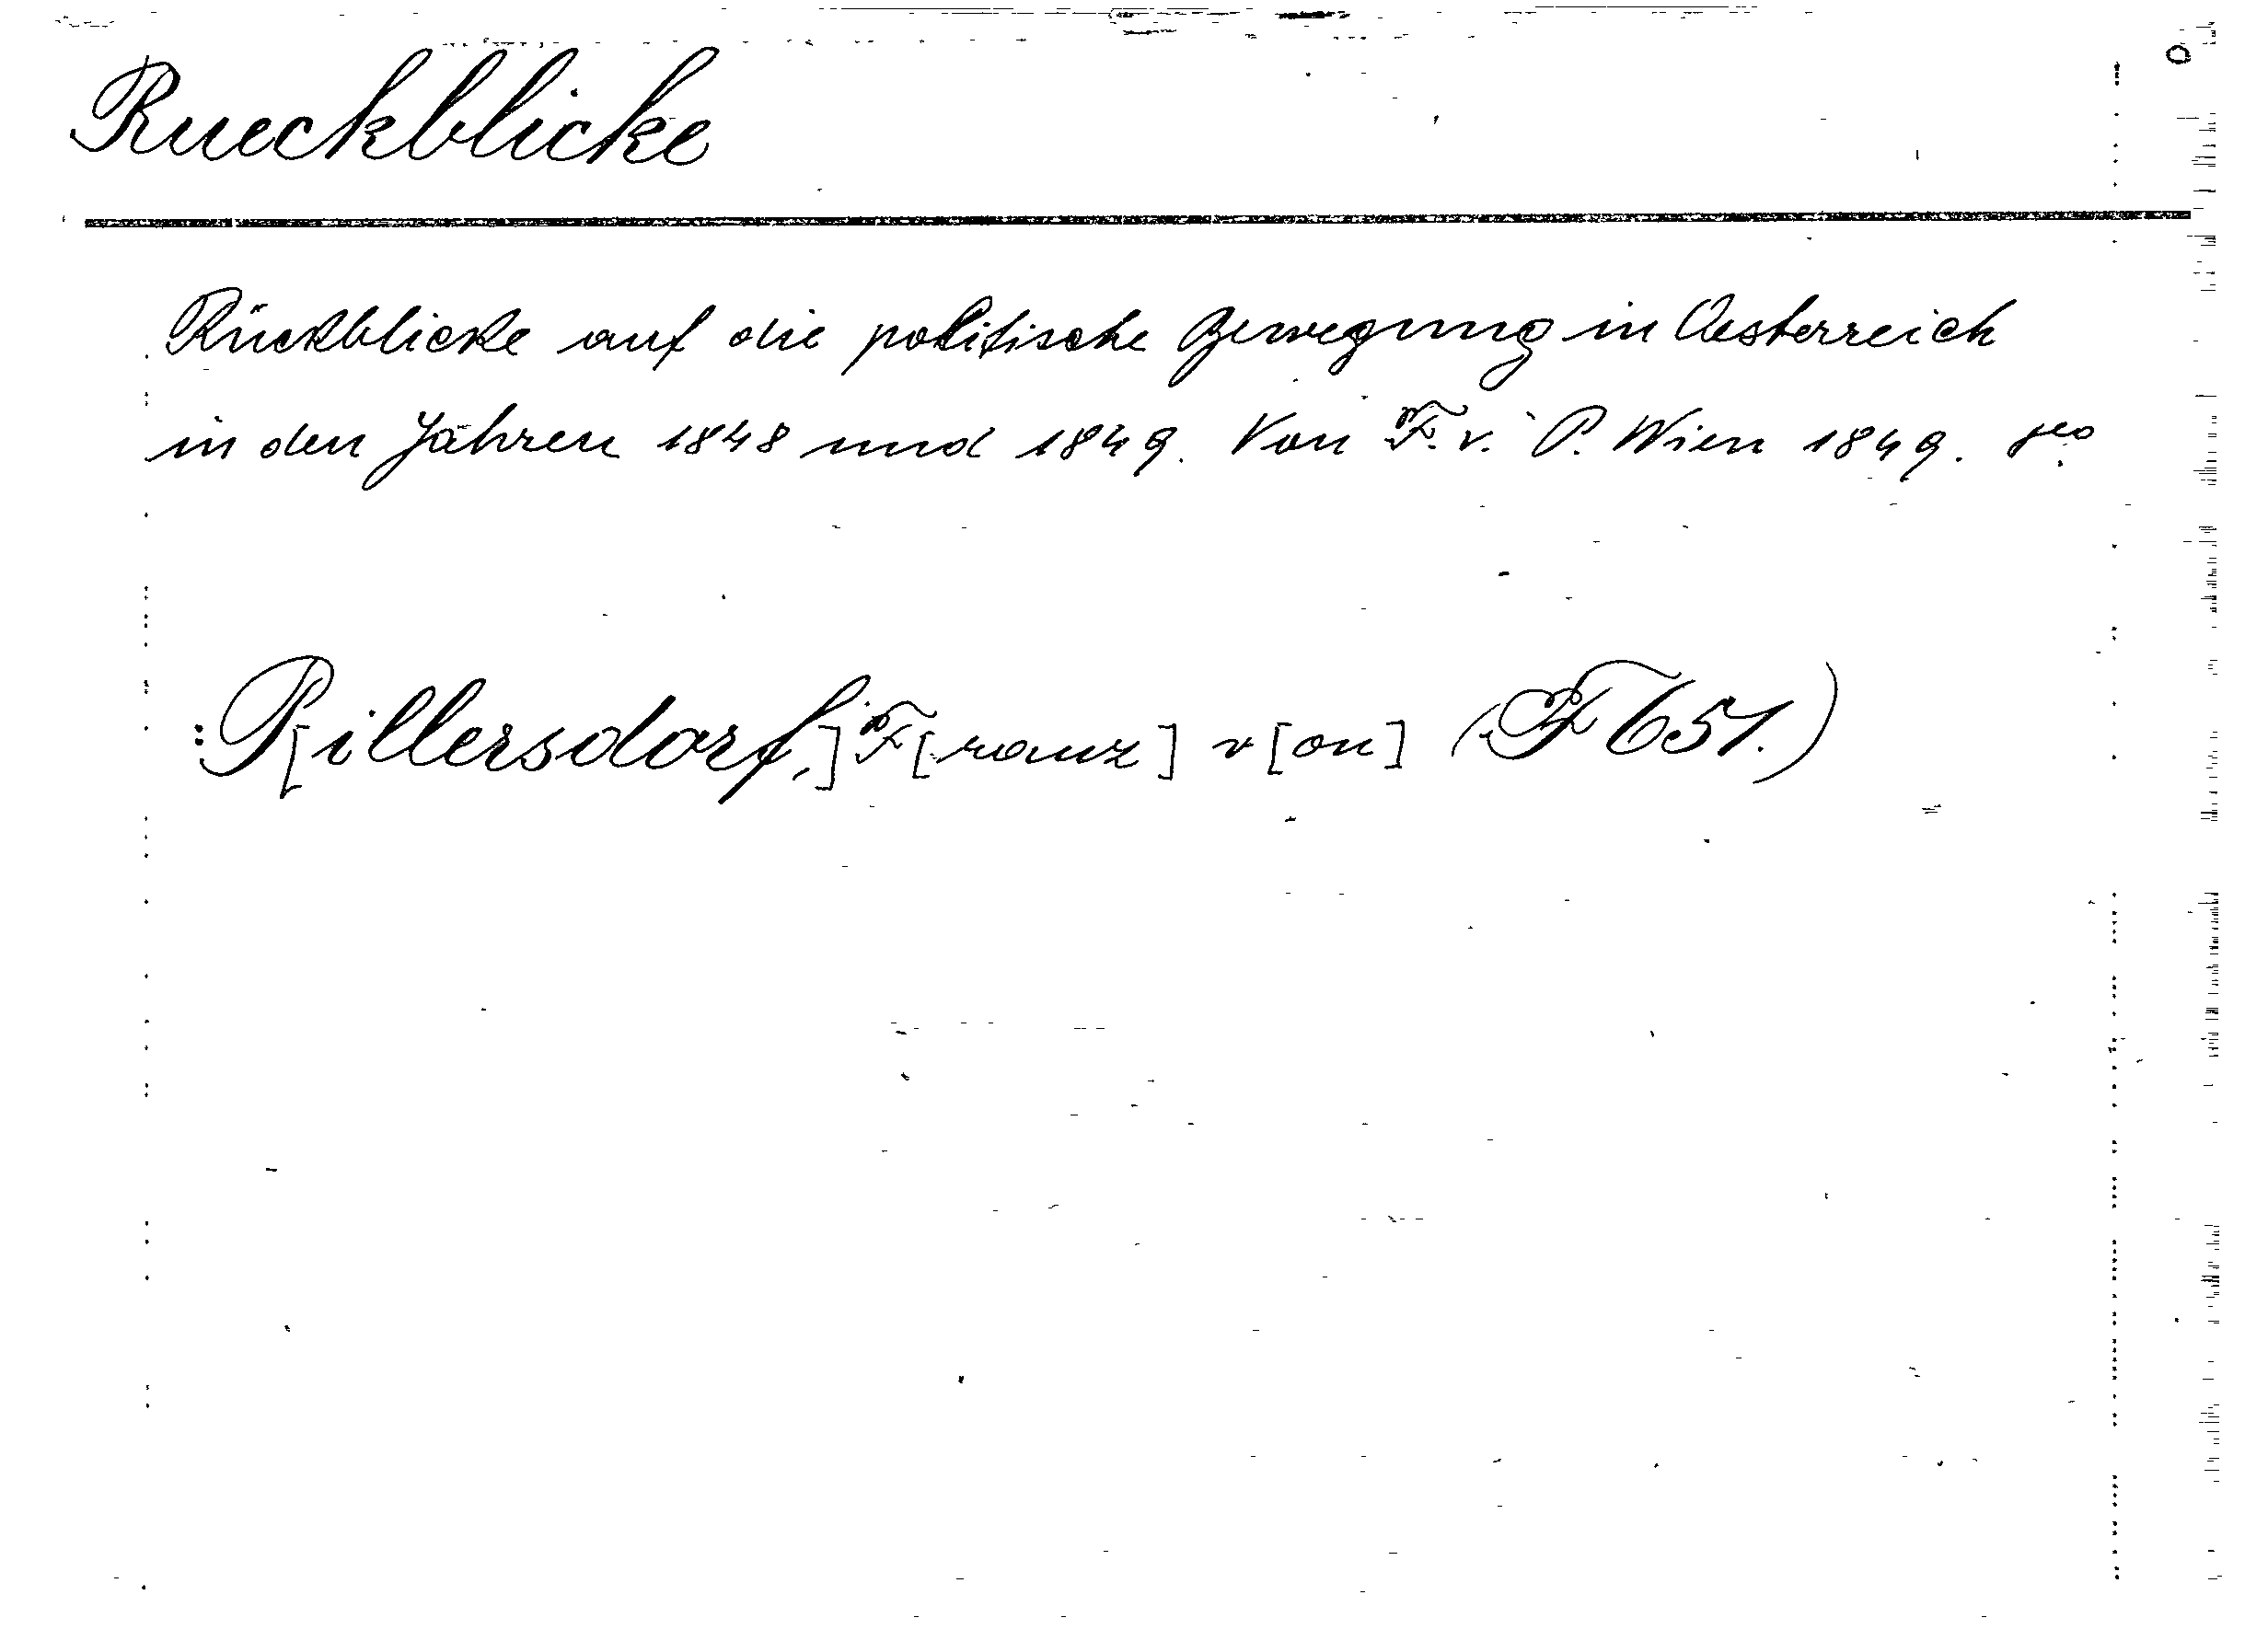 Rueckblicke
Rückblicke auf die politische Bewegung in Oesterreich
in den Jahren 1848 und 1849. Von F. v. P. Wien 1849. 8º
: P[illersdorf,] F[ranz] v[on] (F 651.)